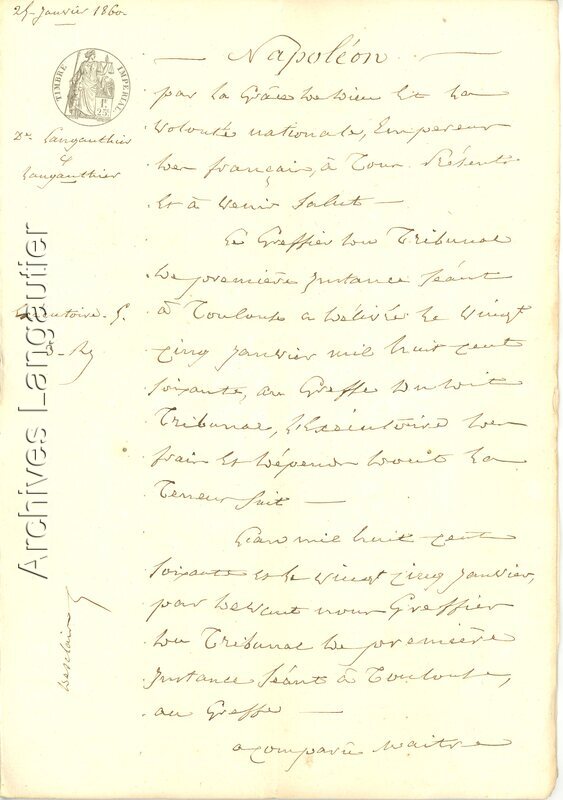 25 Janvier 1860
TIMBRE IMPERIAL
1F.
25C.
Langauthier
&
Langauthier
Archives Langautier
— Napoléon —
par la Grâce de Dieu Et la
Volonté nationale, Empereur
des français, à Tous Présents
Et à venir Salut —
Le Greffier du Tribunal
de première Instance Séant
à Toulouse a délivré Le vingt
cinq Janvier mil huit cent
soixante, au Greffe dudit
Tribunal, L'Exécutoire des
frais Et dépends dont La
Teneur Suit —
L'an mil huit cent
soixante et le vingt cinq Janvier,
par devant nous Greffier
du Tribunal de première
Instance Séant à Toulouse,
au Greffe —
a comparû Maitre